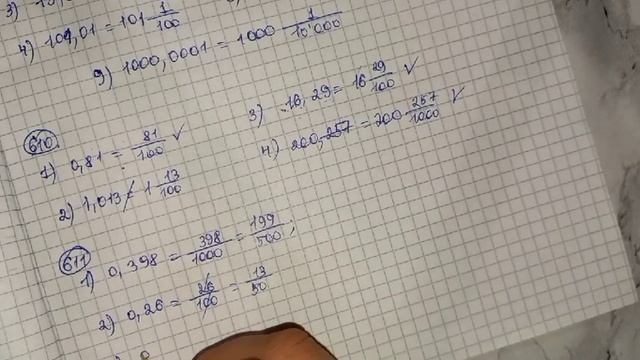 3)
4) 101,01 = 101 1/100
9) 1000,0001 = 1000 1/10'000
610
1) 0,81 = 81/100 ✓
3) 16,29 = 16 29/100 ✓
2) 1,013 ≠ 1 13/100
4) 200,257 = 200 257/1000 ✓
611
1) 0,398 = 398/1000 = 199/500 ;
2) 0,26 = 26/100 = 13/50